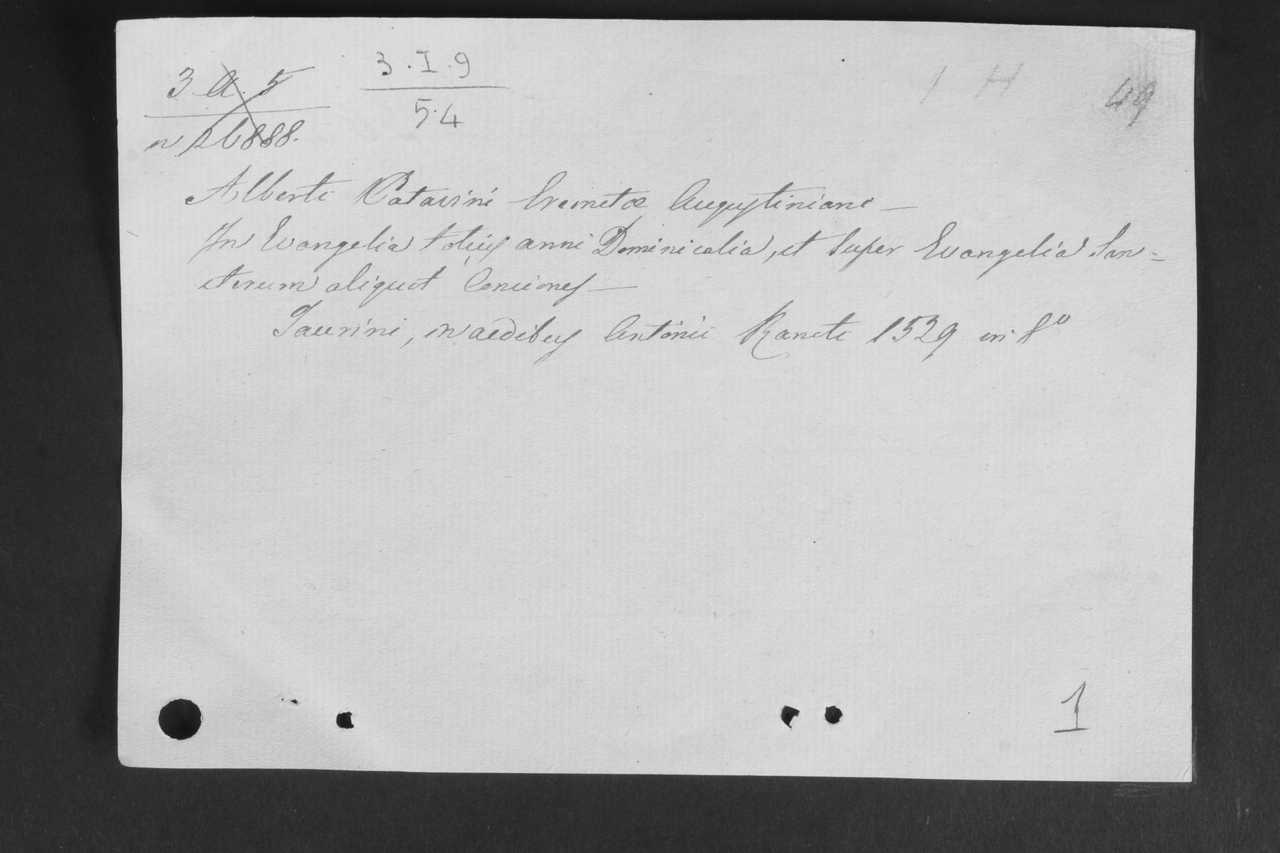 3 a. 5
3. I. 9
1 H
49
5.4
n 26888.
Alberti Patavini Eremitæ Augustiniani —
In Evangelia totius anni Dominicalia, et super Evangelia San=
ctorum aliquot Conciones —
Taurini, in aedibus Antonii Ranoti 1529 in 8º
1